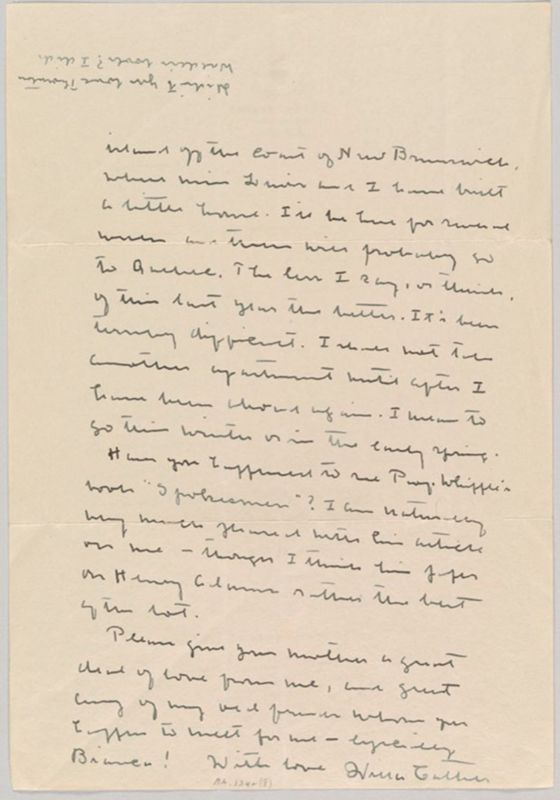 island off the coast of New Brunswick,
where Miss Lewis and I have built
a little house. I'll be here for several
weeks and then will probably go
to Quebec. The less I say, or think,
of this last year the better. It's been
terribly difficult. I shall not take
another apartment until after I
have been abroad again. I mean to
go this winter or in the early spring.
Have you happened to see Prof. Whipple's
book "Spokesmen"? I am naturally
very much pleased with his article
on me – though I think his paper
on Henry Adams rather the best
of the lot.
Please give your mother a great
deal of love from me, and greet
any of my old friends whom you
happen to meet for me – especially
Bianca! With love Willa Cather
Didn't you love Thornton
Wilder's book? I did.